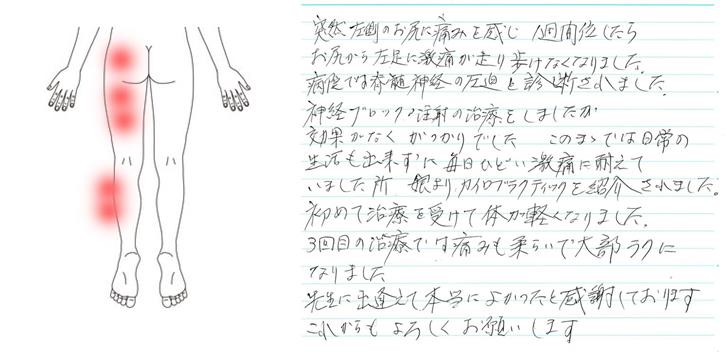 突然 左側のお尻に痛みを感じ 1週間位したら
お尻から左足に激痛が走り歩けなくなりました。
病院では脊髄神経の圧迫と診断されました。
神経ブロック注射の治療をしましたが
効果がなく がっかりでした このまゝでは日常の
生活も出来ずに 毎日ひどい激痛に耐えて
いました所 娘よりカイロプラクティックを紹介されました。
初めて治療を受けて体が軽くなりました。
3回目の治療では痛みも柔らいで大部ラクに
なりました
先生に出逢えて本当によかったと感謝しております
これからも よろしく お願いします